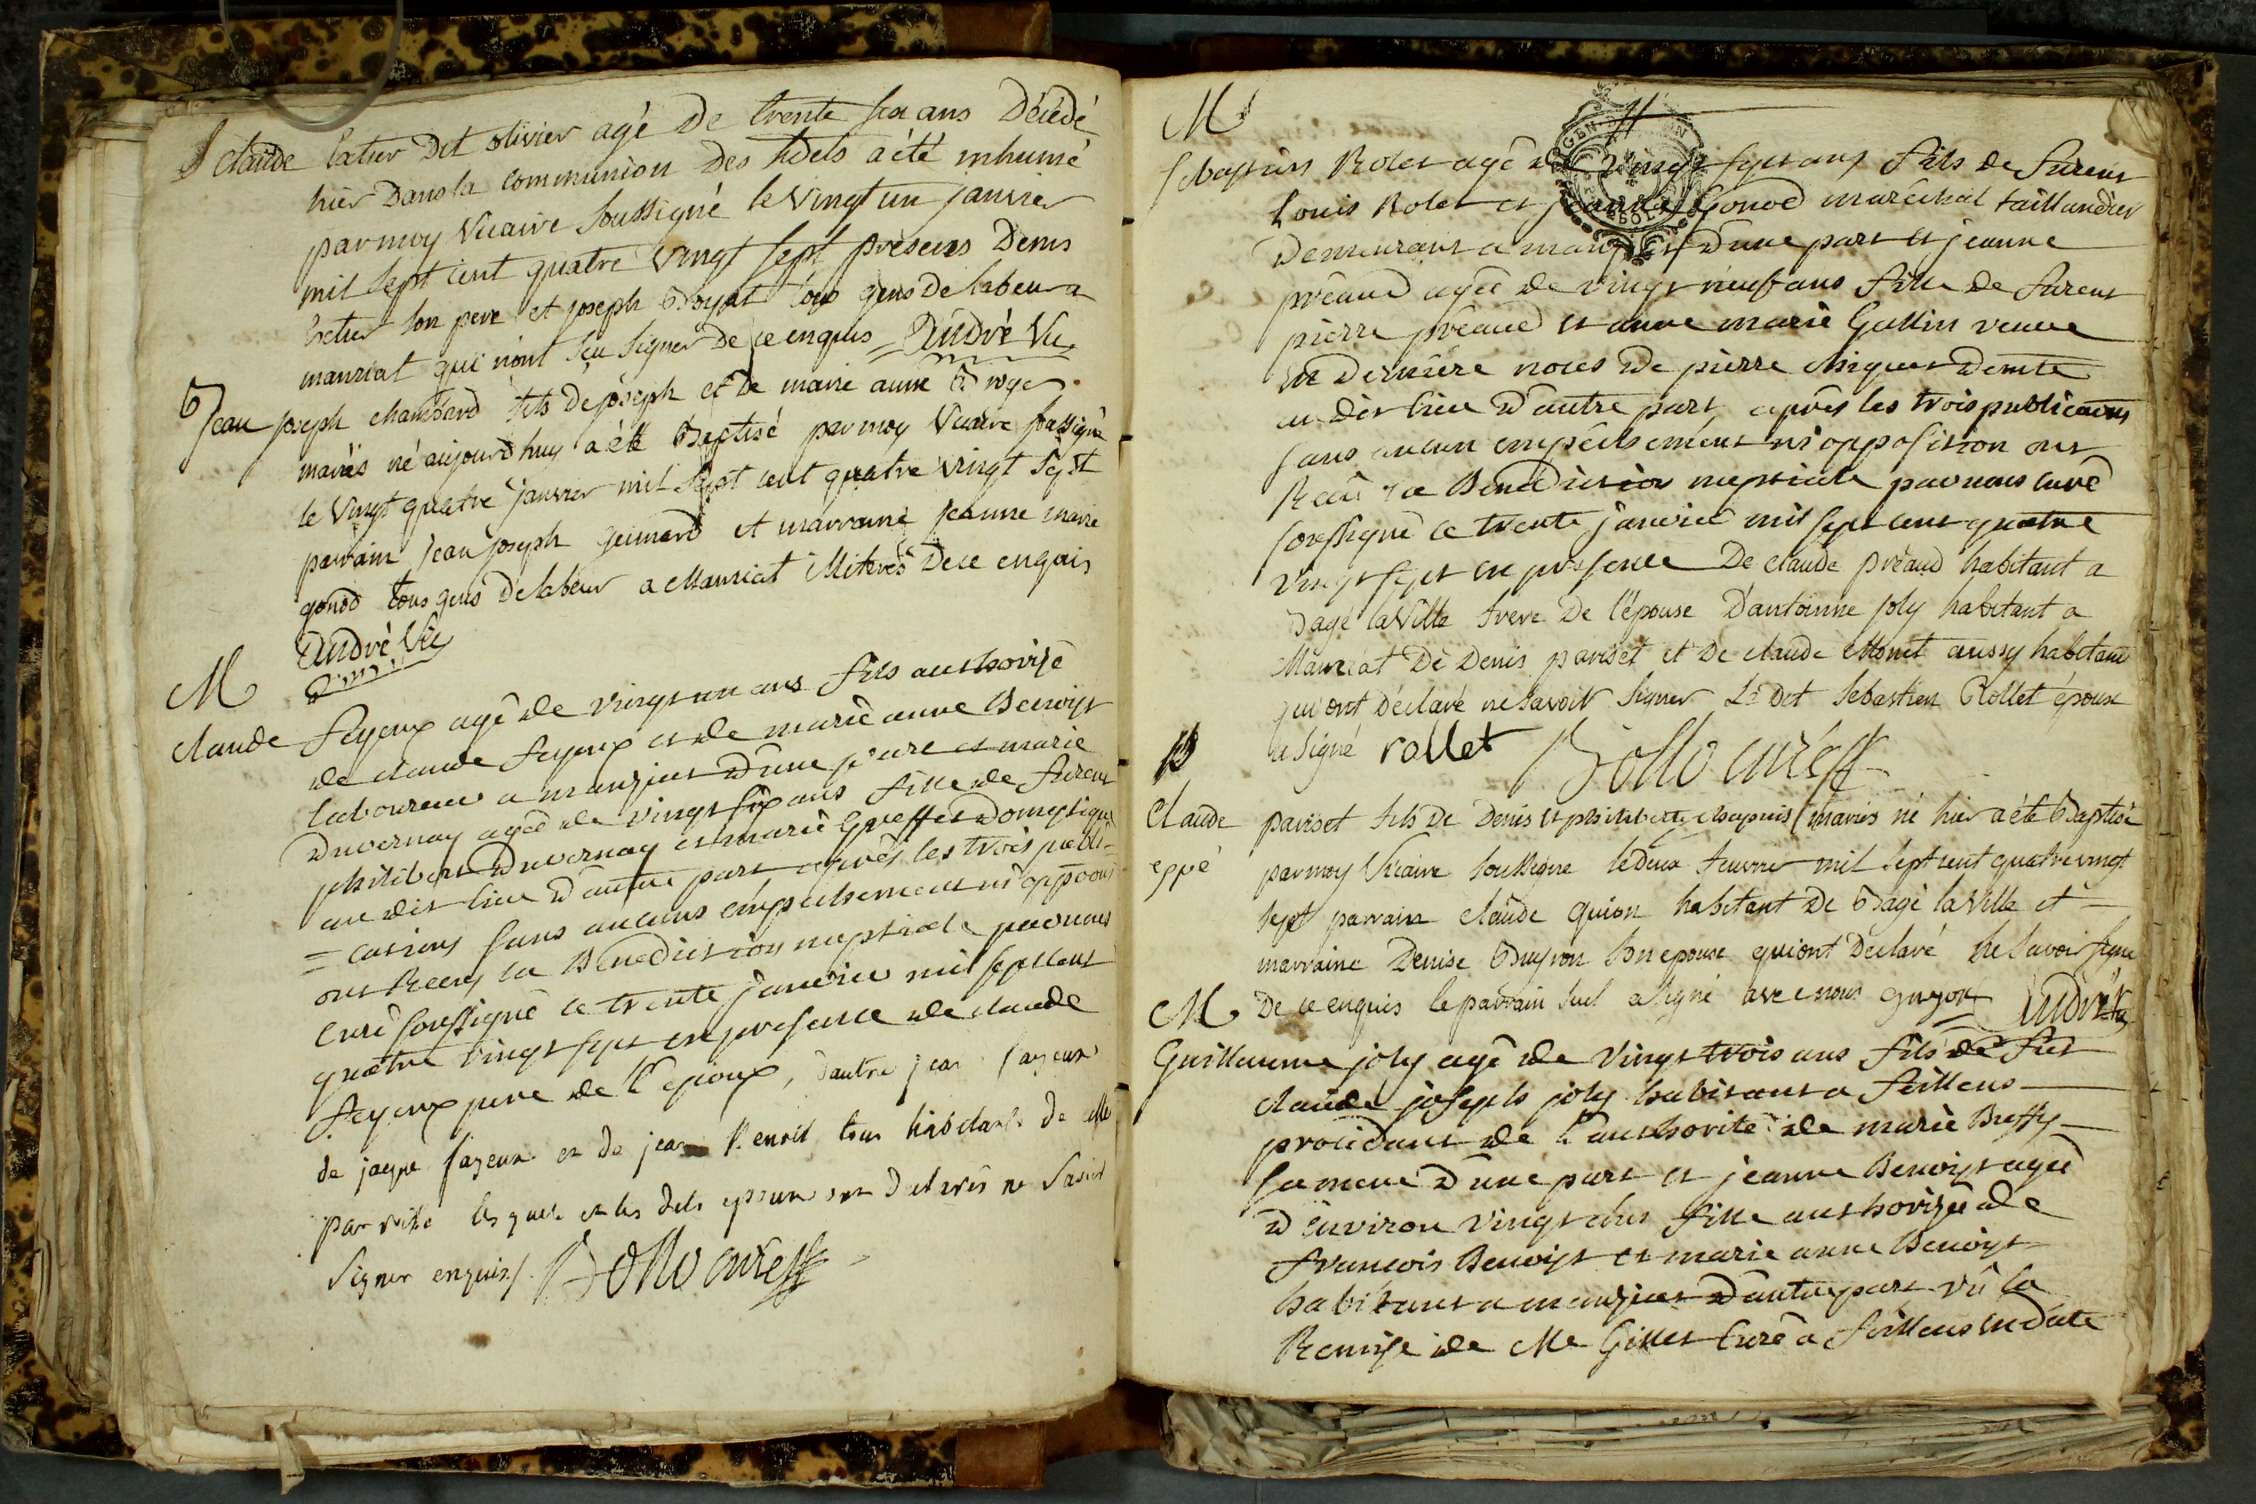 S Claude Catier dit olivier agé De trente six ans Décédé
hier Dans la communion Des fidels a été inhumé
par moy Vicaire Soussigné le vingt un janvier
mil Sept cent quatre vingt Sept présens Denis
Catier son pere et joseph Boyat tous gens de labeur a
manziat qui n'ont sçu Signer de ce enquis André Vic.
B
Jean joseph chambard fils de joseph et de marie anne Broyer
mariés né aujourd'huy a été Baptisé par moy Vicaire soussigné
le Vingt quatre janvier mil Sept cent quatre vingt Sept
parrain Jean joseph guimard et marraine jeanne marie
gonod tous gens de labeur a Manziat illiterés De ce enquis
André Vic
M
Claude Feyeux agé de vingt un ans fils authorisé
de claude Feyeux et de marie anne Benoist
laboureur a manziat d'une part et marie
Duvernay agée de vingt six ans fille de furent
philibert Duvernay et marie Greffet Domestique
au dit lieu d'autre part après les trois publi-
=cations sans aucuns empechement ni opposition
ont Reçus la Benediction nuptiale par nous
curé soussigné ce trente janvier mil sept cent
quatre vingt sept en presence de claude
Feyeux pere de l'epoux, d'autre jean fayeux
de jaque fayeux et de jean Benoit tous habitants de cette
parroisse lesquels et les dits epoux ont declarés ne savoir
signer enquis. Bollo curé
M
Sebastien Rolet agé de vingt sept ans fils de furent
Louis Rolet et jeanne Gonod maréchal taillandier
Demeurant a manziat d'une part et jeanne
préaud agée de vingt neuf ans fille de furent
pierre préaud et anne marie Guillin veuve
en derniere noces de pierre Chiquet Demte
au dit lieu d'autre part après les trois publications
sans aucun empêchement ni opposition ont
Recû la Benediction nuptiale par nous curé
soussigné ce trente janvier mil sept cent quatre
vingt sept en presence De claude préaud habitant a
Bagé la Ville frere De l'épouse D'antoinne joly habitant a
Manziat De Denis pariset et De claude Monet aussy habitant
qui ont Déclaré ne savoir Signer Le Dit Sebastien Rollet époux
a Signé rollet Bollo curé
B
Claude pariset fils de Denis et philiberte chapuis mariés né hier a été Baptisé
par moy Vicaire soussigné le deux fevrier mil sept cent quatre vingt
sept parrain claude guion habitant De Bagé la Ville et
marraine Denise Buyron son epouse qui ont Declaré ne savoir signer
De ce enquis le parrain seul a signé avec nous guyon André Vic
M
Guillaume joly agé de vingt trois ans fils de feu
claude joseph joly habitant a feillens
procédant de l'authorité de marie Buffy
sa mere d'une part et jeanne Benoist agée
d'environ vingt ans fille authorisée de
François Benoist et marie anne Benoist
habitant a manziat d'autre part vû la
Remise de Me Gillet Curé a feillens en date